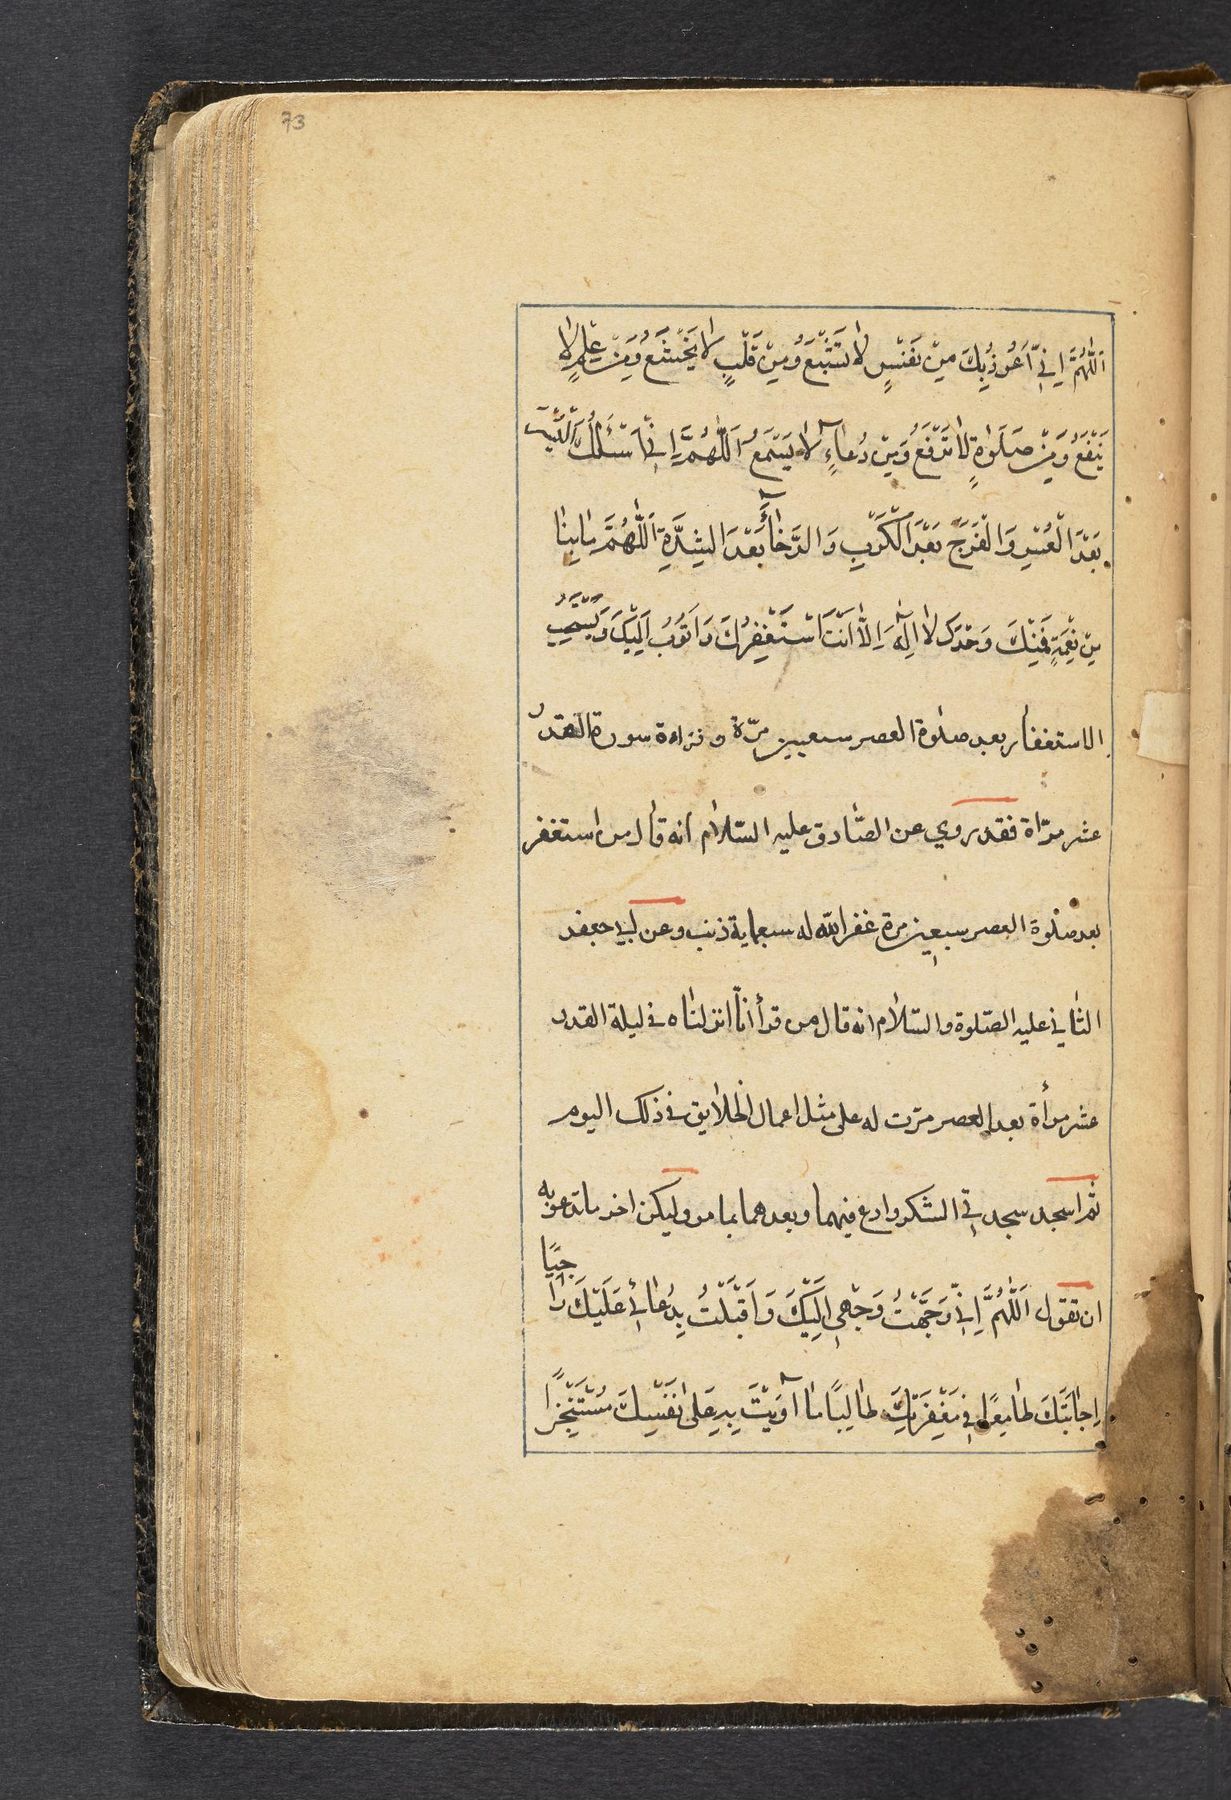 73
اَللّٰهُمَّ اِنِّي اَعُوذُ بِكَ مِنْ نَفْسٍ لَا تَشْبَعُ وَمِنْ قَلْبٍ لَا يَخْشَعُ وَمِنْ عِلْمٍ لَا
يَنْفَعُ وَمِنْ صَلٰوةٍ لَا تُرْفَعُ وَمِنْ دُعَاءٍ لَا يُسْمَعُ اَللّٰهُمَّ اِنِّي اَسْئَلُكَ الْيُسْرَ
بَعْدَ الْعُسْرِ وَالْفَرَجَ بَعْدَ الْكَرْبِ وَالرَّخَاءَ بَعْدَ الشِّدَّةِ اَللّٰهُمَّ مَا بِنَا
مِنْ نِعْمَةٍ فَمِنْكَ وَحْدَكَ لَا اِلٰهَ اِلَّا اَنْتَ اَسْتَغْفِرُكَ وَاَتُوبُ اِلَيْكَ وَيُسْتَحَبُّ
الاستغفار بعد صلوة العصر سبعين مرّة وقراءة سورة القدر
عشر مرّاة فقد روي عن الصّادق عليه السّلام انه قال من استغفر
بعد صلوة العصر سبعين مرة غفر الله له سبعماية ذنب وعن ابي جعفر
الثاني عليه الصّلوة والسّلام انه قال من قرأ انّا انزلناه في ليلة القدر
عشر مرأة بعد العصر مرّت له على مثل اعمال الخلايق في ذلك اليوم
ثم اسجد سجدتي الشكر وادع فيهما وبعدهما بما مر وليكن اخر ما تدعو به
ان تقول اَللّٰهُمَّ اِنِّي وَجَّهْتُ وَجْهِي اِلَيْكَ وَاَقْبَلْتُ بِدُعَائِي عَلَيْكَ رَاجِيًا
اِجَابَتَكَ طَامِعًا فِي مَغْفِرَتِكَ طَالِبًا مَا اَوَيْتَ بِهِ عَلٰى نَفْسِكَ مُسْتَنْجِزًا